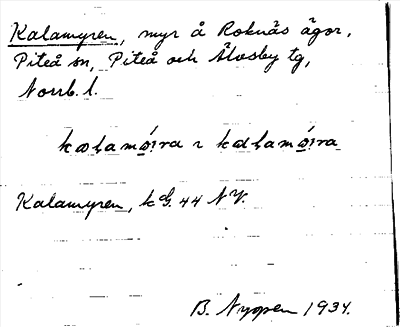 Kalamyren, myr å Roknäs ägor,
Piteå sn, Piteå och Älvsby tg,
Norrb. l.
Kalamyren, kG. 44 NV.
B. Nygren 1934.